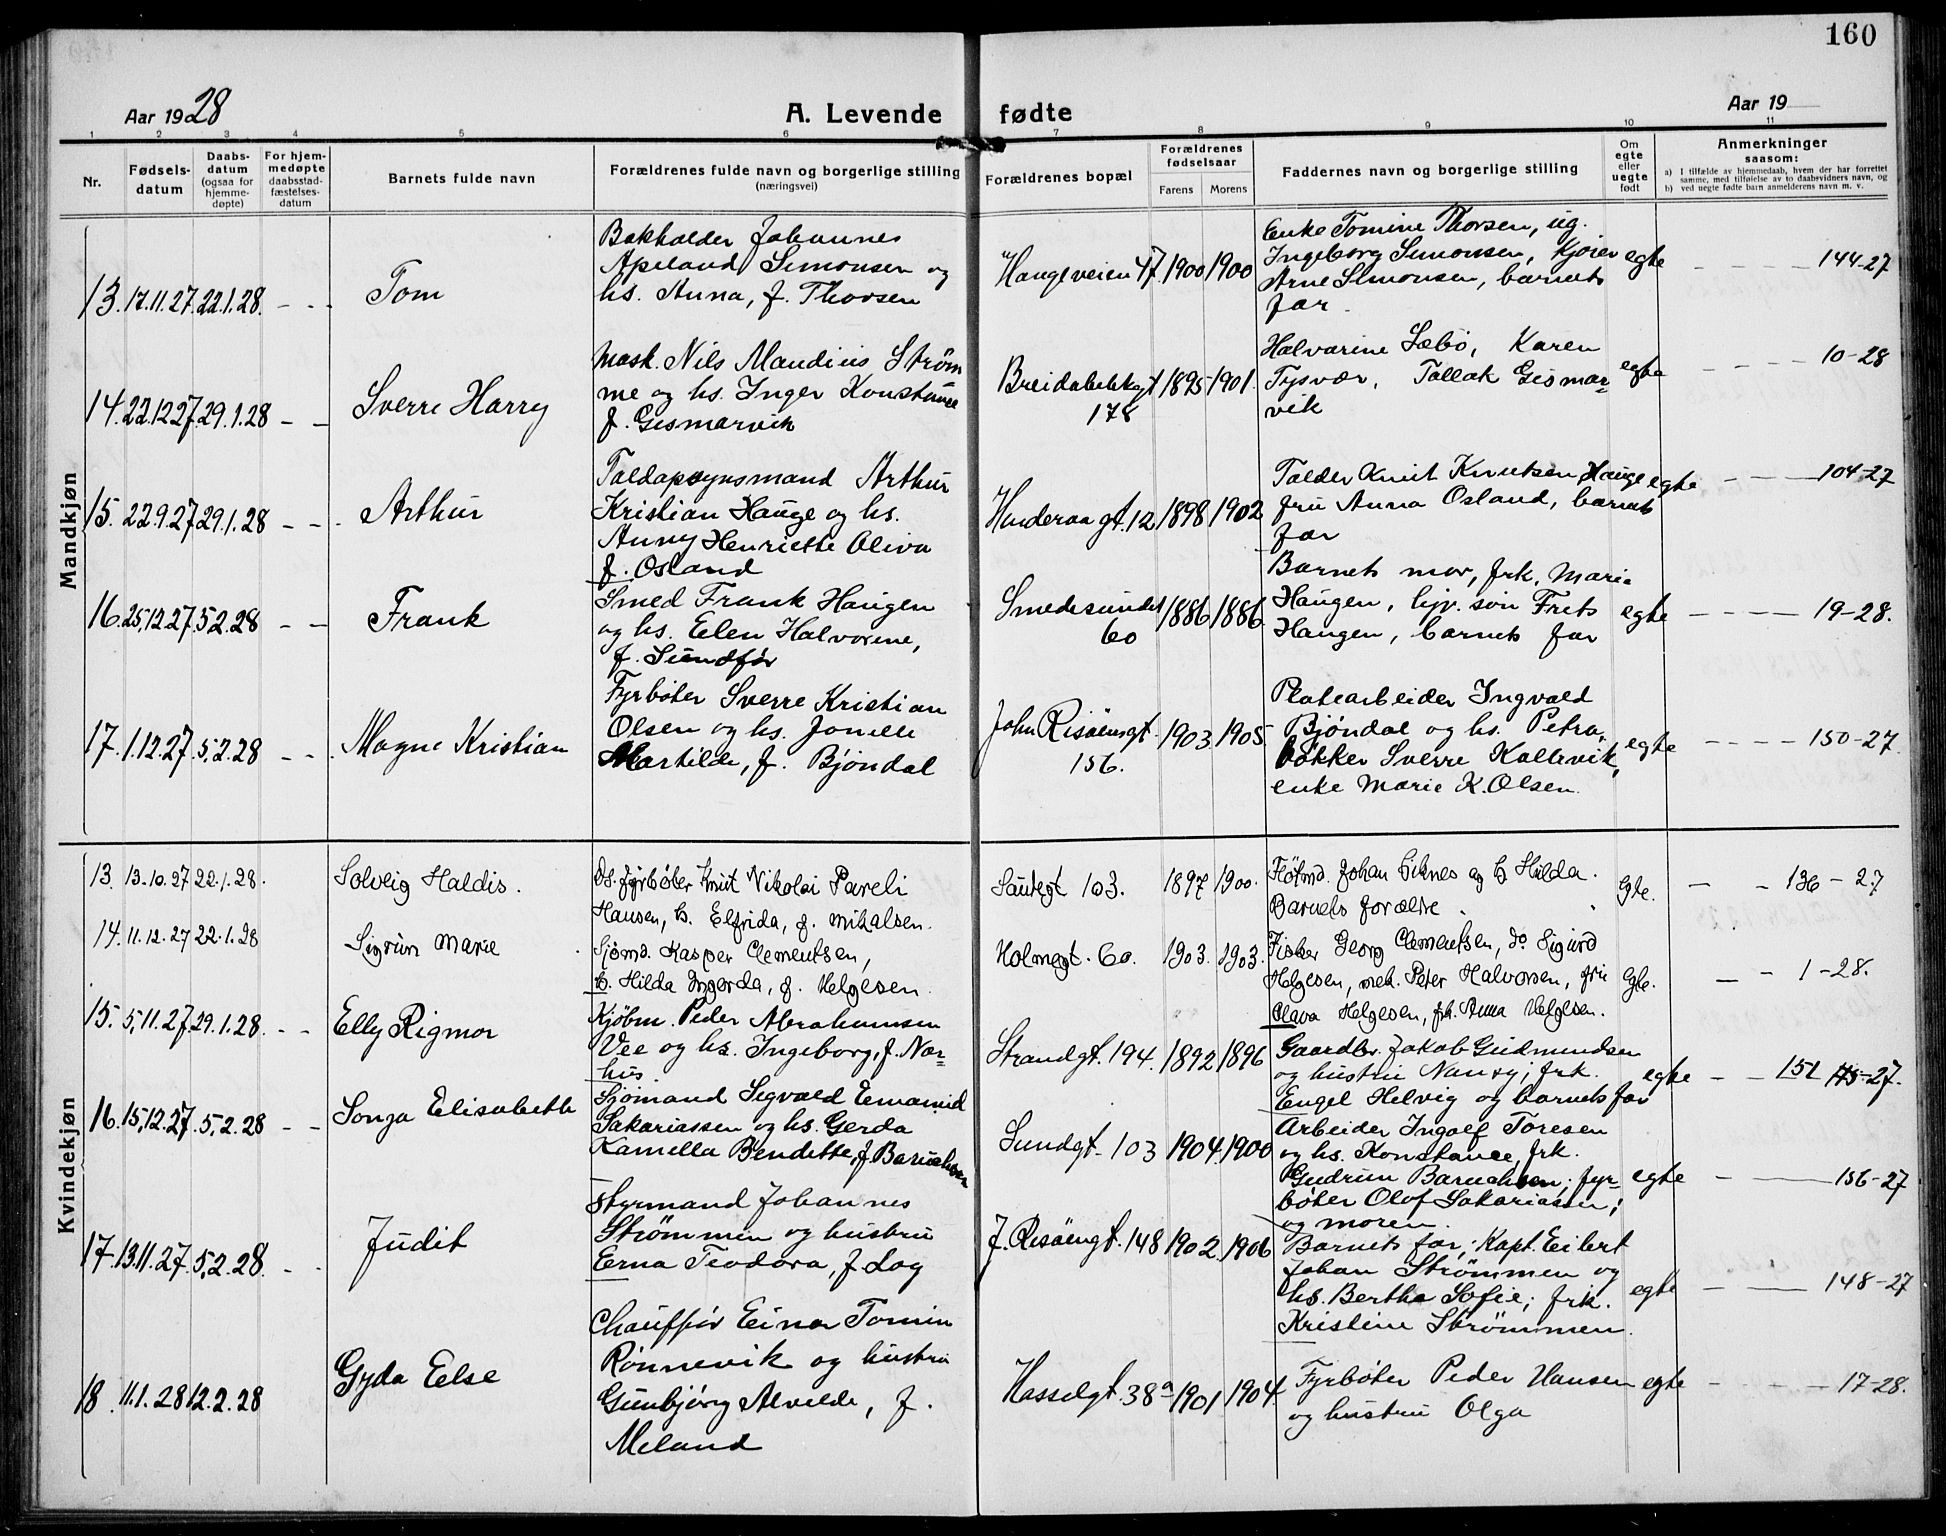 160
Aar 1928
A. Levende fødte
Aar 19
1 2 3 4 5 6 7 8 9 10 11
Nr.
Fødsels-
datum
Daabs-
datum
(ogsaa for
hjemme-
døpte)
For hjem-
medøpte
daabsstad-
fæstelses-
datum
Barnets fulde navn
Forældrenes fulde navn og borgerlige stilling
(næringsvei)
Forældrenes bopæl
Forældrenes
fødselsaar
Farens Morens
Faddernes navn og borgerlige stilling
Om
egte
eller
uegte
født
Anmerkninger
saasom:
a) I tilfælde av hjemmedaab, hvem der har forrettet
samme, med tilføielse av to daabsvidners navn, og
b) ved uegte fødte barn anmelderens navn m. v.
Mandkjøn
13. 17.11.27. 22.1.28. - - -
Tom
Bokholder Johannes
Apeland Simonsen og
hs. Anna, f. Thorsen
Haugeveien 47. 1900 1900
Enke Tomine Thorsen, ug.
Ingeborg Simonsen, Kjøier
Arne Simonsen, barnets
far.
egte
144-27
14. 22.12.27. 29.1.28 - -
Sverre Harry
Mask. Nils Mandius Strøm
me og hs. Inger Konstance
f. Gismarvik
Breidablikgt 1895 1901.
178
Halvarine Sæbö, Karen
Tysvær, Tallak Gismar-
vik
egte
10-28
15. 22.9.27 29.1.28 - - -
Arthur
Toldopsynsmand Arthur
Kristian Hauge og hs.
Anny Henriette Oliva
f. Osland
Hinderaagt. 12 1898 1902
Tolder Knut Knutsen Hauge
fru Anna Osland, barnets
far
egte
104-27
16. 25.12.27. 5.2.28 - -
Frank
Smed Frank Haugen
og hs. Elen Halvorine,
f. Sundfør
Smedesundet 1886 1886
60
Barnets mor, frk. Marie
Haugen, hjv. søn Frets
Haugen, barnets far
egte
19-28.
17. 1.12.27. 5.2.28 - - .
Magne Kristian
Fyrbøter Sverre Kristian
Olsen og hs. Jonelle
Martilde, f. Bjöndal
John Risöengt. 1903. 1905.
156.
Platearbeider Ingvald
Bjöndal og hs. Petra,
bökker Sverre Kallevik,
enke Marie K. Olsen.
egte
150-27.
Kvindekjøn
13. 13.10.27 22.1.28.
Solveig Haldis.
Ds. fyrböter Knut Nikolai Pareli
Hansen, h. Elfrida, f. Mikalsen.
Sautegt 103. 1897 1900.
Fløtmd. Johan Liknes og h Hilda.
Barnets forældre.
Egte.
136-27
14. 11.12.27 22.1.28
Sigrun Marie
Sjømd. Kasper Clementsen,
h. Hilda Ingerda, f. Helgesen.
Holmegt. 60. 1903. 1903.
Fisker Georg Clementsen, do Sigurd
Helgesen, mek. Peter Halvorsen, fru
Clara Helgesen, frk. Anna Helgesen.
Egte.
1-28.
15. 5.11.27. 29.1.28. - -
Elly Rigmor
Kjøbm. Peder Abrahamsen
Vee og hs. Ingeborg, f. Nor-
hus
Strandgt. 194. 1892 1896
Gaardbr. Jakob Gudmundsen
og hustru Nancy; frk.
Engel Helvig og barnets far
egte
151 -27.
16. 15.12.27. 5.2.28 - -
Sonja Elisabeth
Sjömand Sigvald Emanuid
Sakariassen og hs. Gerda
Kamella Bendette, f Baruchsen
Sundgt. 103 1904. 1900
Arbeider Ingolf Toresen
og hs. Konstance, frk.
Gudrun Baruchsen; fyr-
böter Olof Sakariassen;
og moren.
egte
156-27
17. 13.11.27. 5.2.28. - -
Judit
Styrmand Johannes
Strömmen og hustru
Erna Teodora, f. Log
J. Risöengt. 148 1902. 1906
Barnets far; Kapt. Eilert
Johan Strömmen og
hs. Bertha Sofie; frk.
Kristine Strömmen.
egte
148-27
18 11.1.28 12.2.28
Gyda Else
Chauffør Einar Tomin
Rönnevik og hustru
Gunbjörg Alvilde, f.
Meland
Hasselgt. 38a 1901 1904.
Fyrböter Peder Hansen
og hustru Olga
egte
17-28.